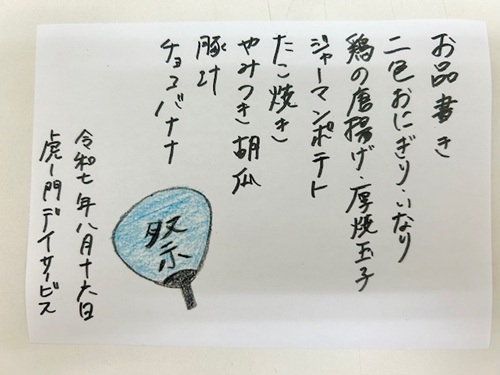 お品書き
二色おにぎり・いなり
鶏の唐揚げ・厚焼玉子
ジャーマンポテト
たこ焼き
やみつき胡瓜
豚汁
チョコバナナ
祭
令和七年八月十六日
虎ノ門デイサービス